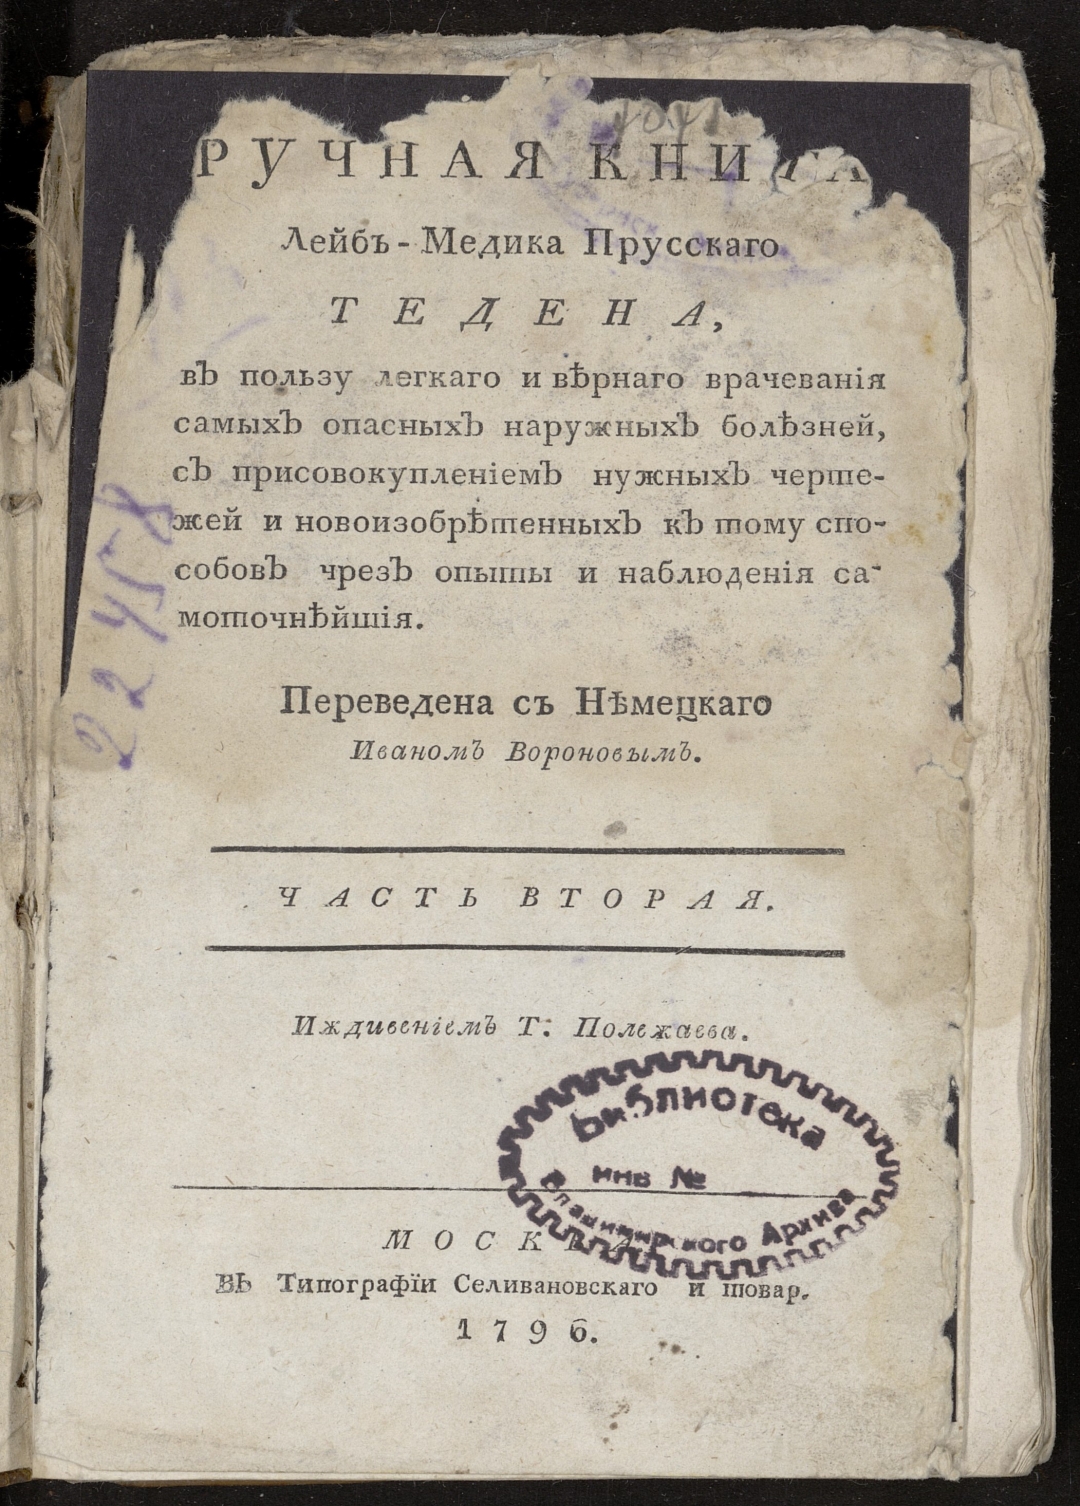 1041
РУЧНАЯ КНИГА
Лейбъ-Медика Прусскаго
ТЕДЕНА,
въ пользу легкаго и вѣрнаго врачеванія
самыхъ опасныхъ наружныхъ болѣзней,
съ присовокупленіемъ нужныхъ черте-
жей и новоизобрѣтенныхъ къ тому спо-
собовъ чрезъ опыты и наблюденія са-
моточнѣйшія.
22458
Переведена съ Нѣмецкаго
Иваномъ Вороновымъ.
ЧАСТЬ ВТОРАЯ.
Иждивеніемъ Т. Полежаева.
Библиотека
инв №
Владимирского Архива
МОСКВА
Въ Типографїи Селивановскаго и товар.
1796.